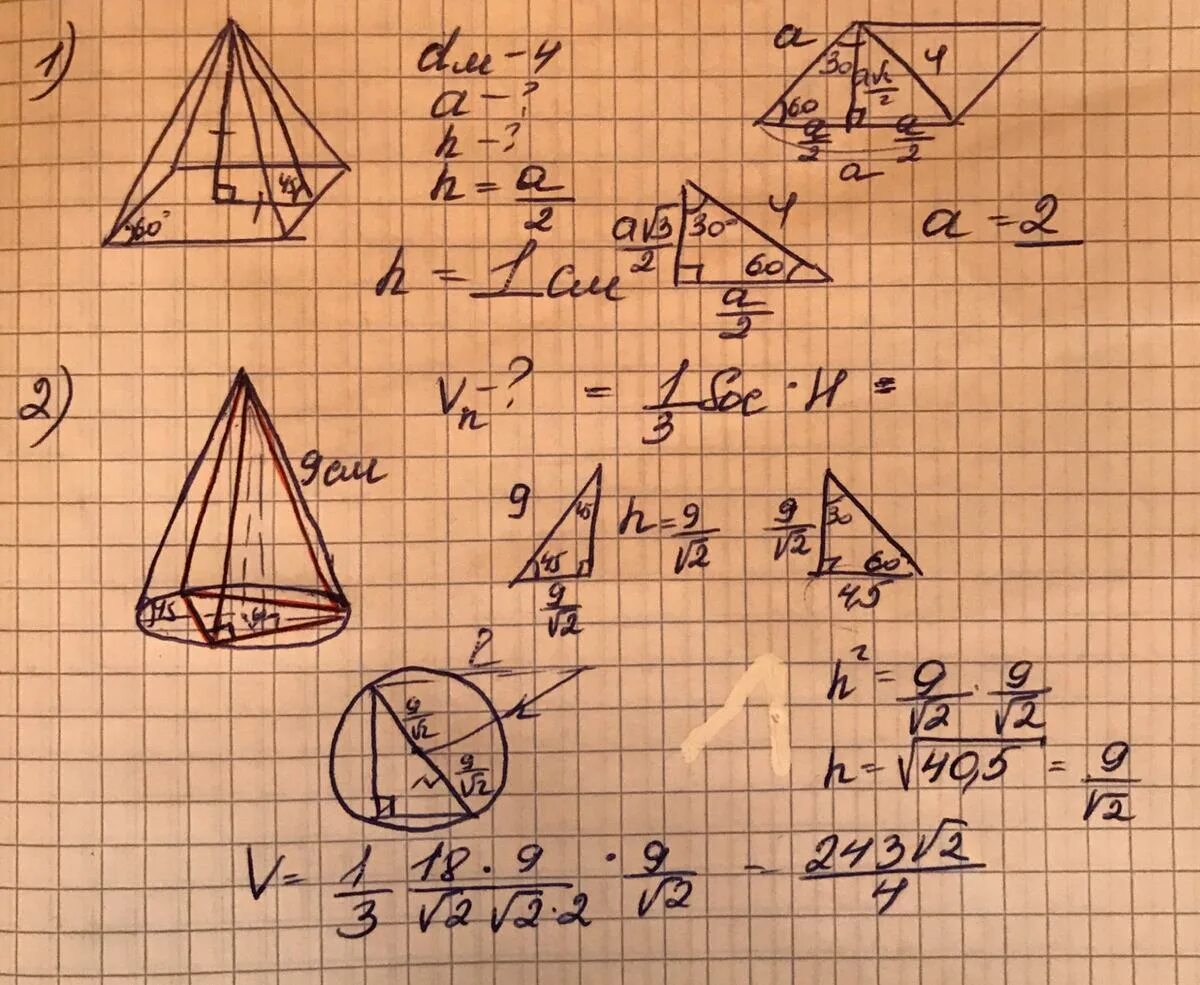 1)
dм - 4
a - ?
h - ?
h = a/2
h = 1 см
60°
45
a
30
4
60
a/2
a/2
a
a√3/2
30°
4
60
a/2
a = 2
2)
9 см
45
Vп - ? = 1/3 Sос · H =
9
45
45
9/√2
h = 9/√2
9/√2
30
60°
45
9/√2
9/√2
h² = 9/√2 · 9/√2
h = √40,5 = 9/√2
V = 1/3 18 · 9/√2 √2 · 2 · 9/√2 = 243√2/4
1